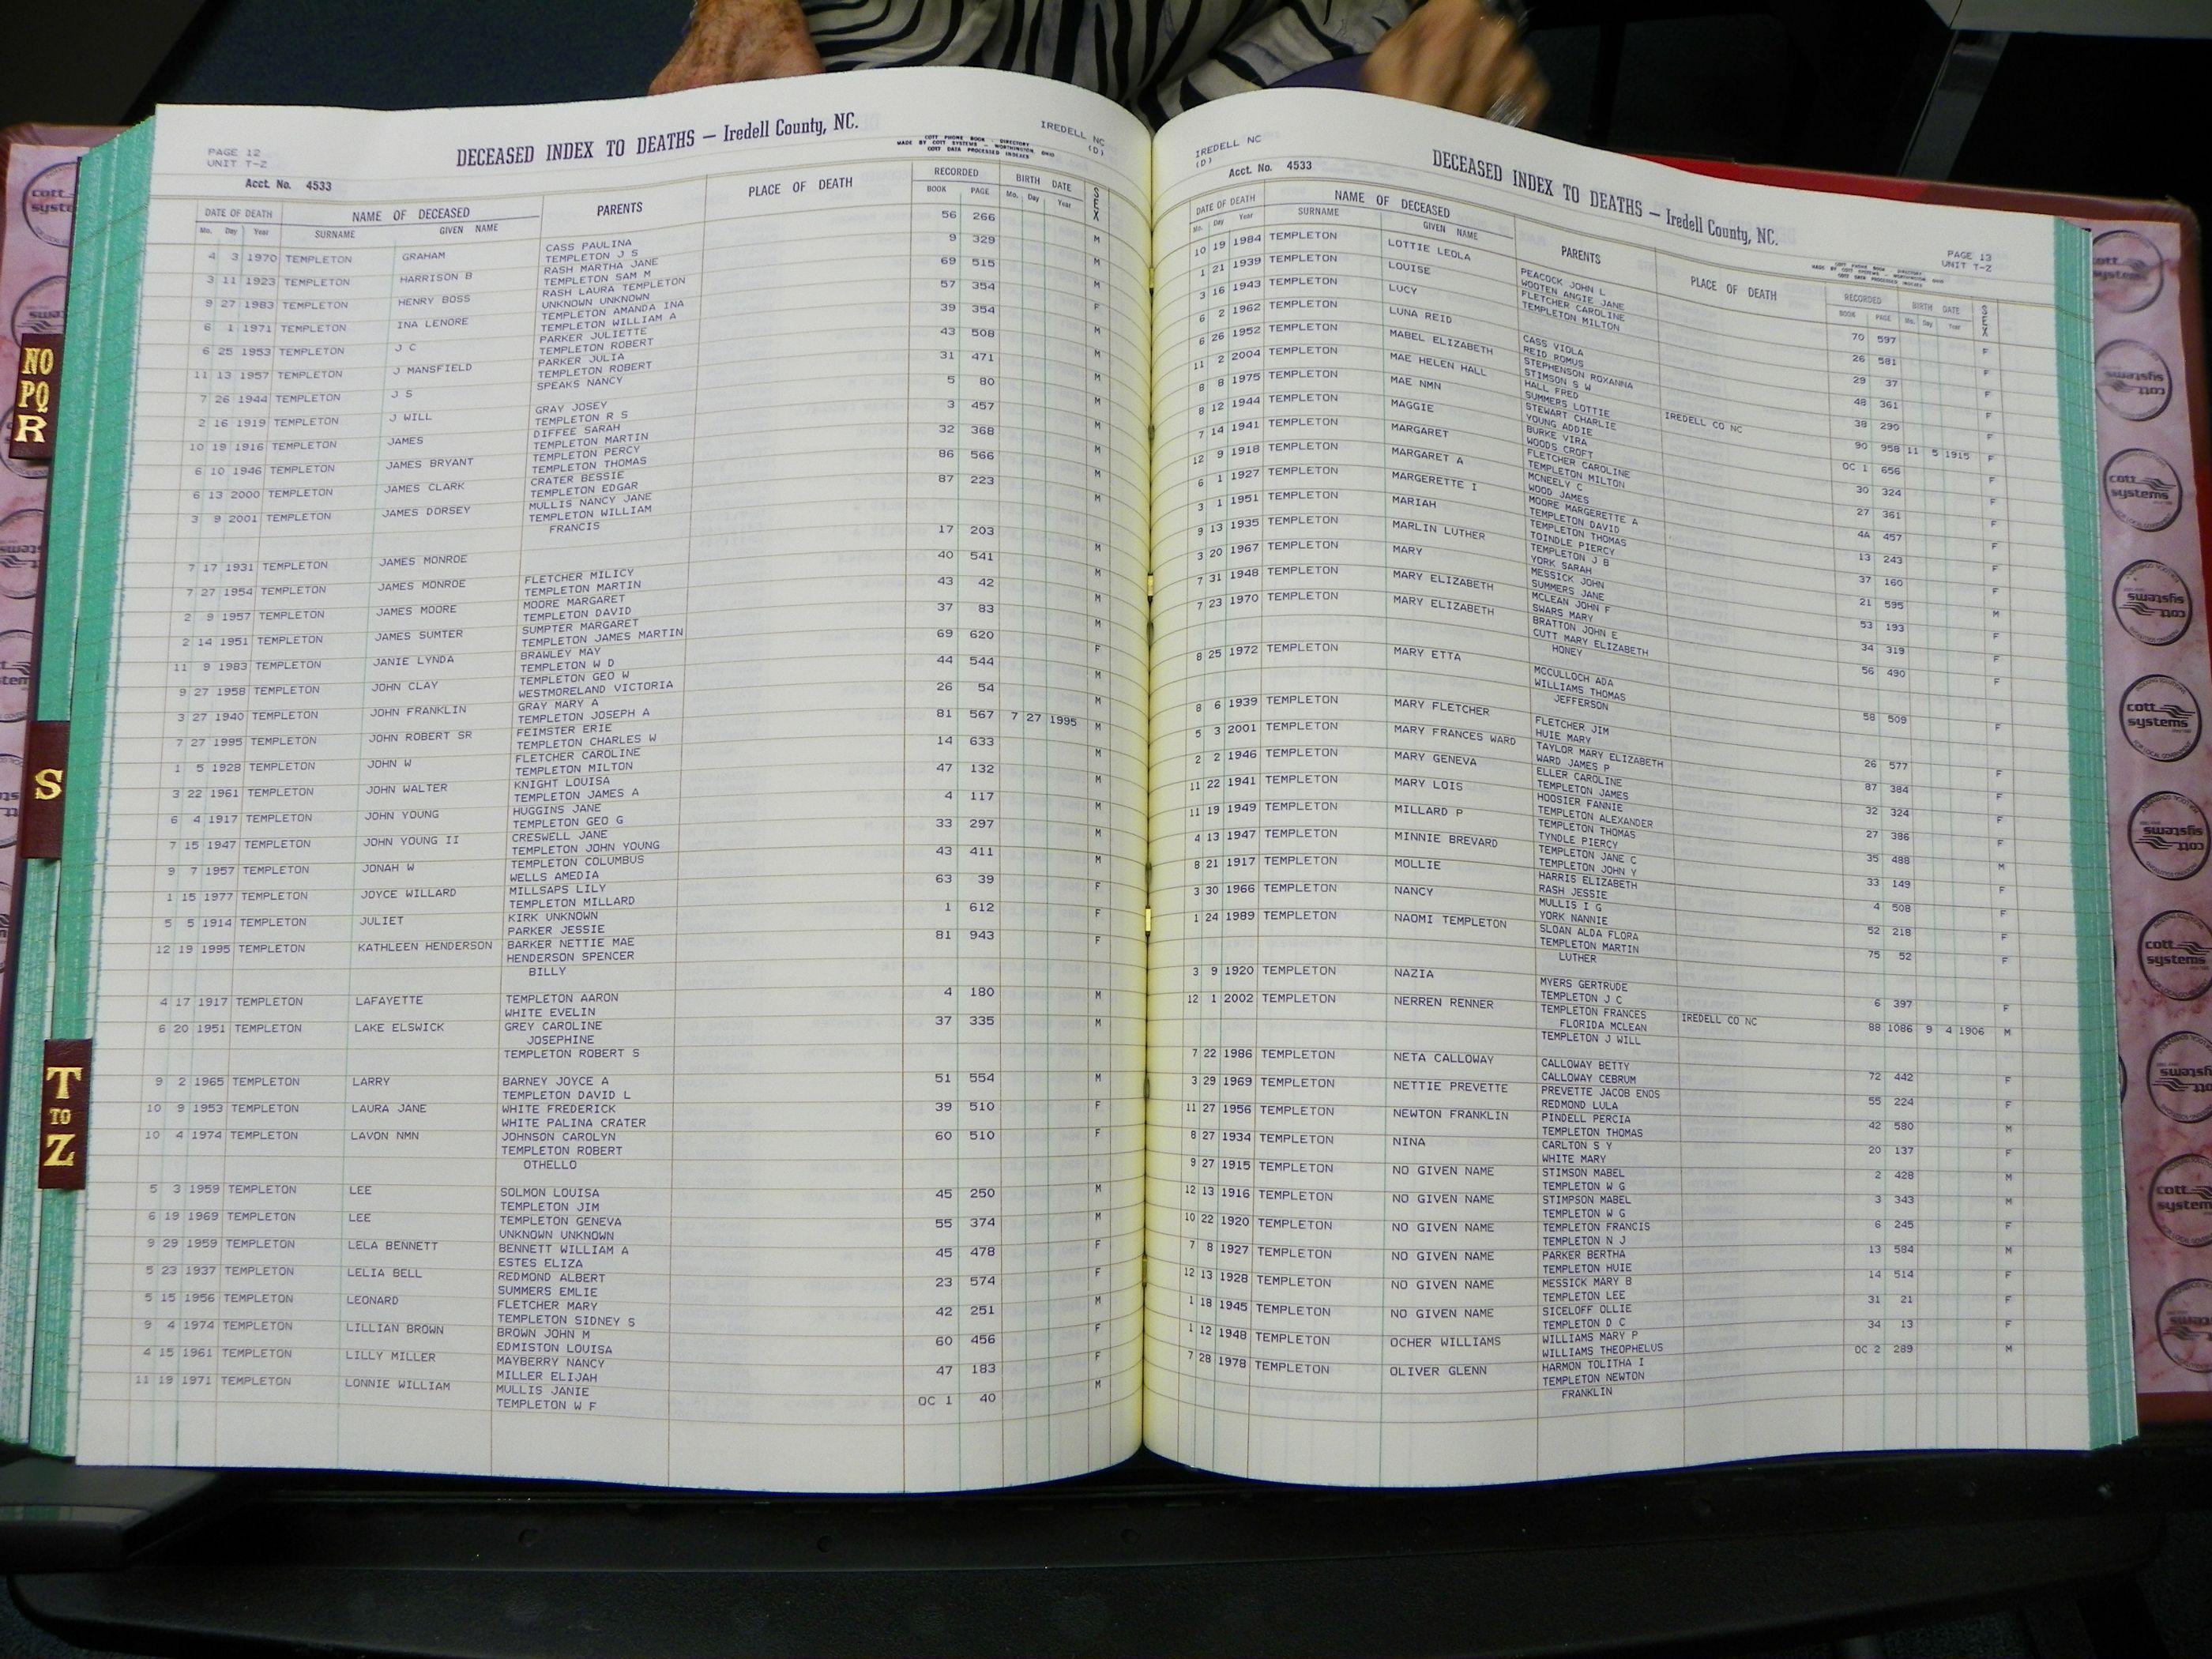 PAGE 12
UNIT T-Z
DECEASED INDEX TO DEATHS — Iredell County, NC.
COTT PHONE BOOK - DIRECTORY
MADE BY COTT SYSTEMS - WORTHINGTON, OHIO
COTT DATA PROCESSED INDEXES
IREDELL NC
(D)
Acct. No. 4533
DATE OF DEATH NAME OF DECEASED PARENTS PLACE OF DEATH RECORDED BIRTH DATE SEX
Mo. Day Year SURNAME GIVEN NAME BOOK PAGE Mo. Day Year
4 3 1970 TEMPLETON GRAHAM CASS PAULINA 56 266 M
TEMPLETON J S
3 11 1923 TEMPLETON HARRISON B RASH MARTHA JANE 9 329 M
TEMPLETON SAM M
9 27 1983 TEMPLETON HENRY BOSS RASH LAURA TEMPLETON 69 515 M
UNKNOWN UNKNOWN
6 1 1971 TEMPLETON INA LENORE TEMPLETON AMANDA INA 57 354 F
TEMPLETON WILLIAM A
6 25 1953 TEMPLETON J C PARKER JULIETTE 39 354 M
TEMPLETON ROBERT
11 13 1957 TEMPLETON J MANSFIELD PARKER JULIA 43 508 M
TEMPLETON ROBERT
7 26 1944 TEMPLETON J S SPEAKS NANCY 31 471 M
2 16 1919 TEMPLETON J WILL GRAY JOSEY 5 80 M
TEMPLETON R S
10 19 1916 TEMPLETON JAMES DIFFEE SARAH 3 457 M
TEMPLETON MARTIN
6 10 1946 TEMPLETON JAMES BRYANT TEMPLETON PERCY 32 368 M
TEMPLETON THOMAS
6 13 2000 TEMPLETON JAMES CLARK CRATER BESSIE 86 566 M
TEMPLETON EDGAR
3 9 2001 TEMPLETON JAMES DORSEY MULLIS NANCY JANE 87 223 M
TEMPLETON WILLIAM
FRANCIS
7 17 1931 TEMPLETON JAMES MONROE 17 203 M
7 27 1954 TEMPLETON JAMES MONROE FLETCHER MILICY 40 541 M
TEMPLETON MARTIN
2 9 1957 TEMPLETON JAMES MOORE MOORE MARGARET 43 42 M
TEMPLETON DAVID
2 14 1951 TEMPLETON JAMES SUMTER SUMPTER MARGARET 37 83 M
TEMPLETON JAMES MARTIN
11 9 1983 TEMPLETON JANIE LYNDA BRAWLEY MAY 69 620 F
TEMPLETON W D
9 27 1958 TEMPLETON JOHN CLAY TEMPLETON GEO W 44 544 M
WESTMORELAND VICTORIA
3 27 1940 TEMPLETON JOHN FRANKLIN GRAY MARY A 26 54 M
TEMPLETON JOSEPH A
7 27 1995 TEMPLETON JOHN ROBERT SR FEIMSTER ERIE 81 567 7 27 1995 M
TEMPLETON CHARLES W
1 5 1928 TEMPLETON JOHN W FLETCHER CAROLINE 14 633 M
TEMPLETON MILTON
3 22 1961 TEMPLETON JOHN WALTER KNIGHT LOUISA 47 132 M
TEMPLETON JAMES A
6 4 1917 TEMPLETON JOHN YOUNG HUGGINS JANE 4 117 M
TEMPLETON GEO G
7 15 1947 TEMPLETON JOHN YOUNG II CRESWELL JANE 33 297 M
TEMPLETON JOHN YOUNG
9 7 1957 TEMPLETON JONAH W TEMPLETON COLUMBUS 43 411 M
WELLS AMEDIA
1 15 1977 TEMPLETON JOYCE WILLARD MILLSAPS LILY 63 39 F
TEMPLETON MILLARD
5 5 1914 TEMPLETON JULIET KIRK UNKNOWN 1 612 F
PARKER JESSIE
12 19 1995 TEMPLETON KATHLEEN HENDERSON BARKER NETTIE MAE 81 943 F
HENDERSON SPENCER
BILLY
4 17 1917 TEMPLETON LAFAYETTE TEMPLETON AARON 4 180 M
WHITE EVELIN
6 20 1951 TEMPLETON LAKE ELSWICK GREY CAROLINE 37 335 M
JOSEPHINE
TEMPLETON ROBERT S
9 2 1965 TEMPLETON LARRY BARNEY JOYCE A 51 554 M
TEMPLETON DAVID L
10 9 1953 TEMPLETON LAURA JANE WHITE FREDERICK 39 510 F
WHITE PALINA CRATER
10 4 1974 TEMPLETON LAVON NMN JOHNSON CAROLYN 60 510 F
TEMPLETON ROBERT
OTHELLO
5 3 1959 TEMPLETON LEE SOLMON LOUISA 45 250 M
TEMPLETON JIM
6 19 1969 TEMPLETON LEE TEMPLETON GENEVA 55 374 M
UNKNOWN UNKNOWN
9 29 1959 TEMPLETON LELA BENNETT BENNETT WILLIAM A 45 478 F
ESTES ELIZA
5 23 1937 TEMPLETON LELIA BELL REDMOND ALBERT 23 574 F
SUMMERS EMLIE
5 15 1956 TEMPLETON LEONARD FLETCHER MARY 42 251 M
TEMPLETON SIDNEY S
9 4 1974 TEMPLETON LILLIAN BROWN BROWN JOHN M 60 456 F
EDMISTON LOUISA
4 15 1961 TEMPLETON LILLY MILLER MAYBERRY NANCY 47 183 F
MILLER ELIJAH
11 19 1971 TEMPLETON LONNIE WILLIAM MULLIS JANIE OC 1 40 M
TEMPLETON W F
IREDELL NC
(D)
DECEASED INDEX TO DEATHS — Iredell County, NC.
COTT PHONE BOOK - DIRECTORY
MADE BY COTT SYSTEMS - WORTHINGTON, OHIO
COTT DATA PROCESSED INDEXES
PAGE 13
UNIT T-Z
Acct. No. 4533
DATE OF DEATH NAME OF DECEASED PARENTS PLACE OF DEATH RECORDED BIRTH DATE SEX
Mo. Day Year SURNAME GIVEN NAME BOOK PAGE Mo. Day Year
10 19 1984 TEMPLETON LOTTIE LEOLA PEACOCK JOHN L 70 597 F
WOOTEN ANGIE JANE
1 21 1939 TEMPLETON LOUISE FLETCHER CAROLINE 26 581 F
TEMPLETON MILTON
3 16 1943 TEMPLETON LUCY 29 37 F
6 2 1962 TEMPLETON LUNA REID CASS VIOLA 48 361 F
REID ROMUS
6 26 1952 TEMPLETON MABEL ELIZABETH STEPHENSON ROXANNA 38 290 F
STIMSON S W
11 2 2004 TEMPLETON MAE HELEN HALL HALL FRED IREDELL CO NC 90 958 11 5 1915 F
SUMMERS LOTTIE
8 8 1975 TEMPLETON MAE NMN STEWART CHARLIE OC 1 656 F
YOUNG ADDIE
8 12 1944 TEMPLETON MAGGIE BURKE VIRA 30 324 F
WOODS CROFT
7 14 1941 TEMPLETON MARGARET FLETCHER CAROLINE 27 361 F
TEMPLETON MILTON
12 9 1918 TEMPLETON MARGARET A MCNEELY C 4A 457 F
WOOD JAMES
6 1 1927 TEMPLETON MARGERETTE I MOORE MARGERETTE A 13 243 F
TEMPLETON DAVID
3 1 1951 TEMPLETON MARIAH TEMPLETON THOMAS 37 160 F
TOINDLE PIERCY
9 13 1935 TEMPLETON MARLIN LUTHER TEMPLETON J B 21 595 M
YORK SARAH
3 20 1967 TEMPLETON MARY MESSICK JOHN 53 193 F
SUMMERS JANE
7 31 1948 TEMPLETON MARY ELIZABETH MCLEAN JOHN F 34 319 F
SWARS MARY
7 23 1970 TEMPLETON MARY ELIZABETH BRATTON JOHN E 56 490 F
CUTT MARY ELIZABETH
HONEY
8 25 1972 TEMPLETON MARY ETTA MCCULLOCH ADA 58 509 F
WILLIAMS THOMAS
JEFFERSON
8 6 1939 TEMPLETON MARY FLETCHER FLETCHER JIM 26 577 F
HUIE MARY
5 3 2001 TEMPLETON MARY FRANCES WARD TAYLOR MARY ELIZABETH 87 384 F
WARD JAMES P
2 2 1946 TEMPLETON MARY GENEVA ELLER CAROLINE 32 324 F
TEMPLETON JAMES
11 22 1941 TEMPLETON MARY LOIS HOOSIER FANNIE 27 386 F
TEMPLETON ALEXANDER
11 19 1949 TEMPLETON MILLARD P TEMPLETON THOMAS 35 488 M
TYNDLE PIERCY
4 13 1947 TEMPLETON MINNIE BREVARD TEMPLETON JANE C 33 149 F
TEMPLETON JOHN Y
8 21 1917 TEMPLETON MOLLIE HARRIS ELIZABETH 4 508 F
RASH JESSIE
3 30 1966 TEMPLETON NANCY MULLIS I G 52 218 F
YORK NANNIE
1 24 1989 TEMPLETON NAOMI TEMPLETON SLOAN ALDA FLORA 75 52 F
TEMPLETON MARTIN
LUTHER
3 9 1920 TEMPLETON NAZIA MYERS GERTRUDE 6 397 F
TEMPLETON J C
12 1 2002 TEMPLETON NERREN RENNER TEMPLETON FRANCES IREDELL CO NC 88 1086 9 4 1906 M
FLORIDA MCLEAN
TEMPLETON J WILL
7 22 1986 TEMPLETON NETA CALLOWAY CALLOWAY BETTY 72 442 F
CALLOWAY CEBRUM
3 29 1969 TEMPLETON NETTIE PREVETTE PREVETTE JACOB ENOS 55 224 F
REDMOND LULA
11 27 1956 TEMPLETON NEWTON FRANKLIN PINDELL PERCIA 42 580 M
TEMPLETON THOMAS
8 27 1934 TEMPLETON NINA CARLTON S Y 20 137 F
WHITE MARY
9 27 1915 TEMPLETON NO GIVEN NAME STIMSON MABEL 2 428 M
TEMPLETON W G
12 13 1916 TEMPLETON NO GIVEN NAME STIMPSON MABEL 3 343 F
TEMPLETON W G
10 22 1920 TEMPLETON NO GIVEN NAME TEMPLETON FRANCIS 6 245 F
TEMPLETON N J
7 8 1927 TEMPLETON NO GIVEN NAME PARKER BERTHA 13 584 M
TEMPLETON HUIE
12 13 1928 TEMPLETON NO GIVEN NAME MESSICK MARY B 14 514 F
TEMPLETON LEE
1 18 1945 TEMPLETON NO GIVEN NAME SICELOFF OLLIE 31 21 F
TEMPLETON D C
1 12 1948 TEMPLETON OCHER WILLIAMS WILLIAMS MARY P 34 13 F
WILLIAMS THEOPHELUS
7 28 1978 TEMPLETON OLIVER GLENN HARMON TOLITHA I OC 2 289 M
TEMPLETON NEWTON
FRANKLIN
NO
PQ
R
S
T
TO
Z
cott
systems